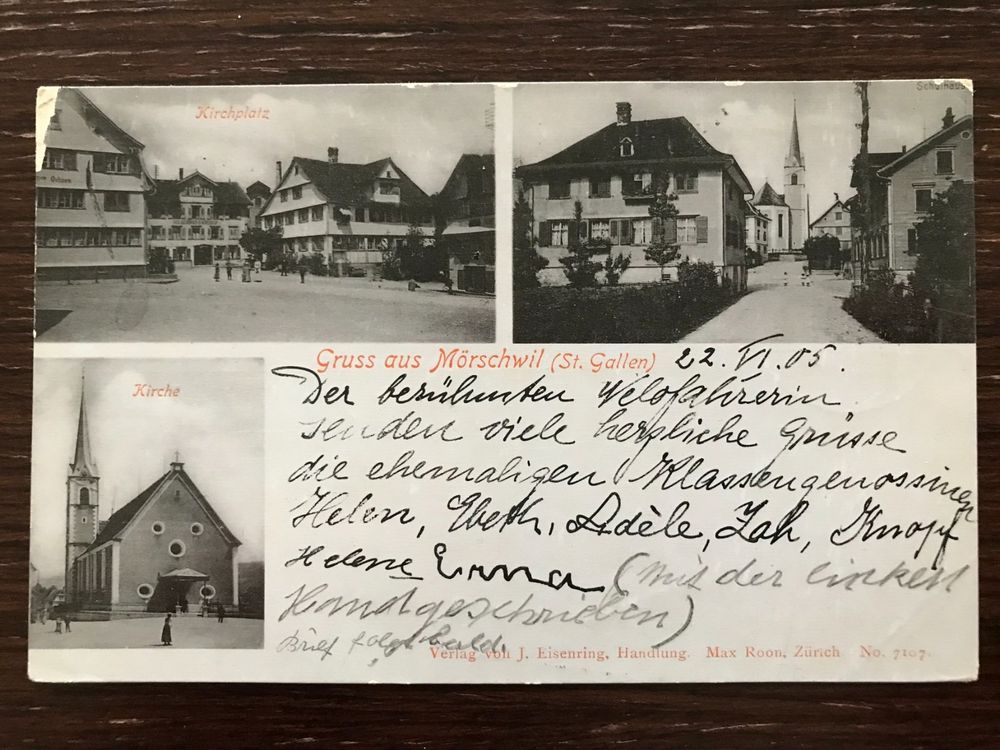 Kirchplatz
Schulhaus
Ochsen
Gruss aus Mörschwil (St. Gallen) 22. VI. 05.
Der berühmten Velofahrerin
senden viele herzliche Grüsse
die ehemaligen Klassengenossinnen
Kirche
Helen, Ebeth, Adèle, Zah, Knopf
Helene Emma (mit der linken
Hand geschrieben)
Brief folgt bald.
Verlag von J. Eisenring, Handlung. Max Roon, Zürich No. 7107.